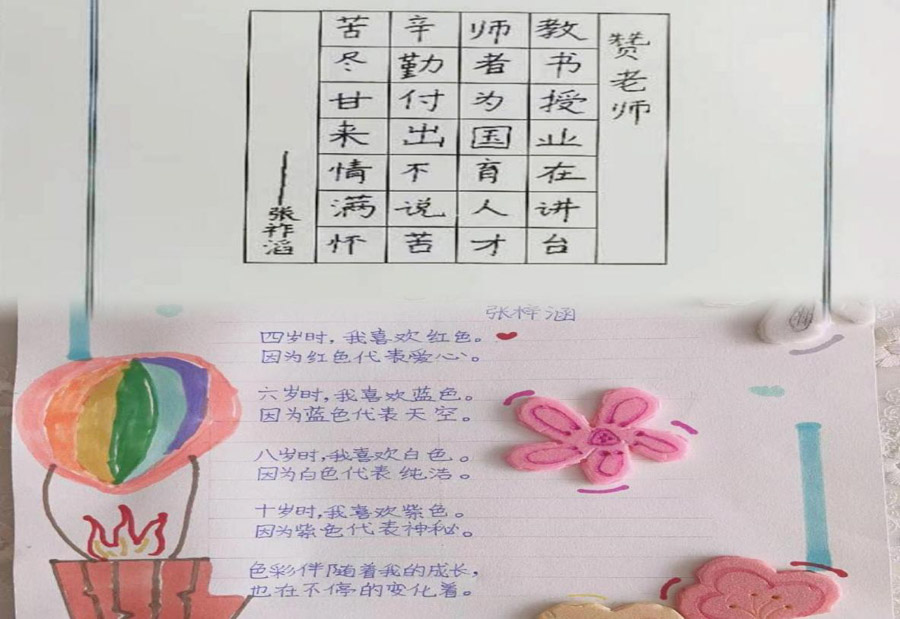 赞老师
教书授业在讲台
师者为国育人才
辛勤付出不说苦
苦尽甘来情满怀
——张祚滔
张梓涵
四岁时，我喜欢红色。
因为红色代表爱心。
六岁时，我喜欢蓝色。
因为蓝色代表天空。
八岁时，我喜欢白色。
因为白色代表纯洁。
十岁时，我喜欢紫色。
因为紫色代表神秘。
色彩伴随着我的成长，
也在不停的变化着。